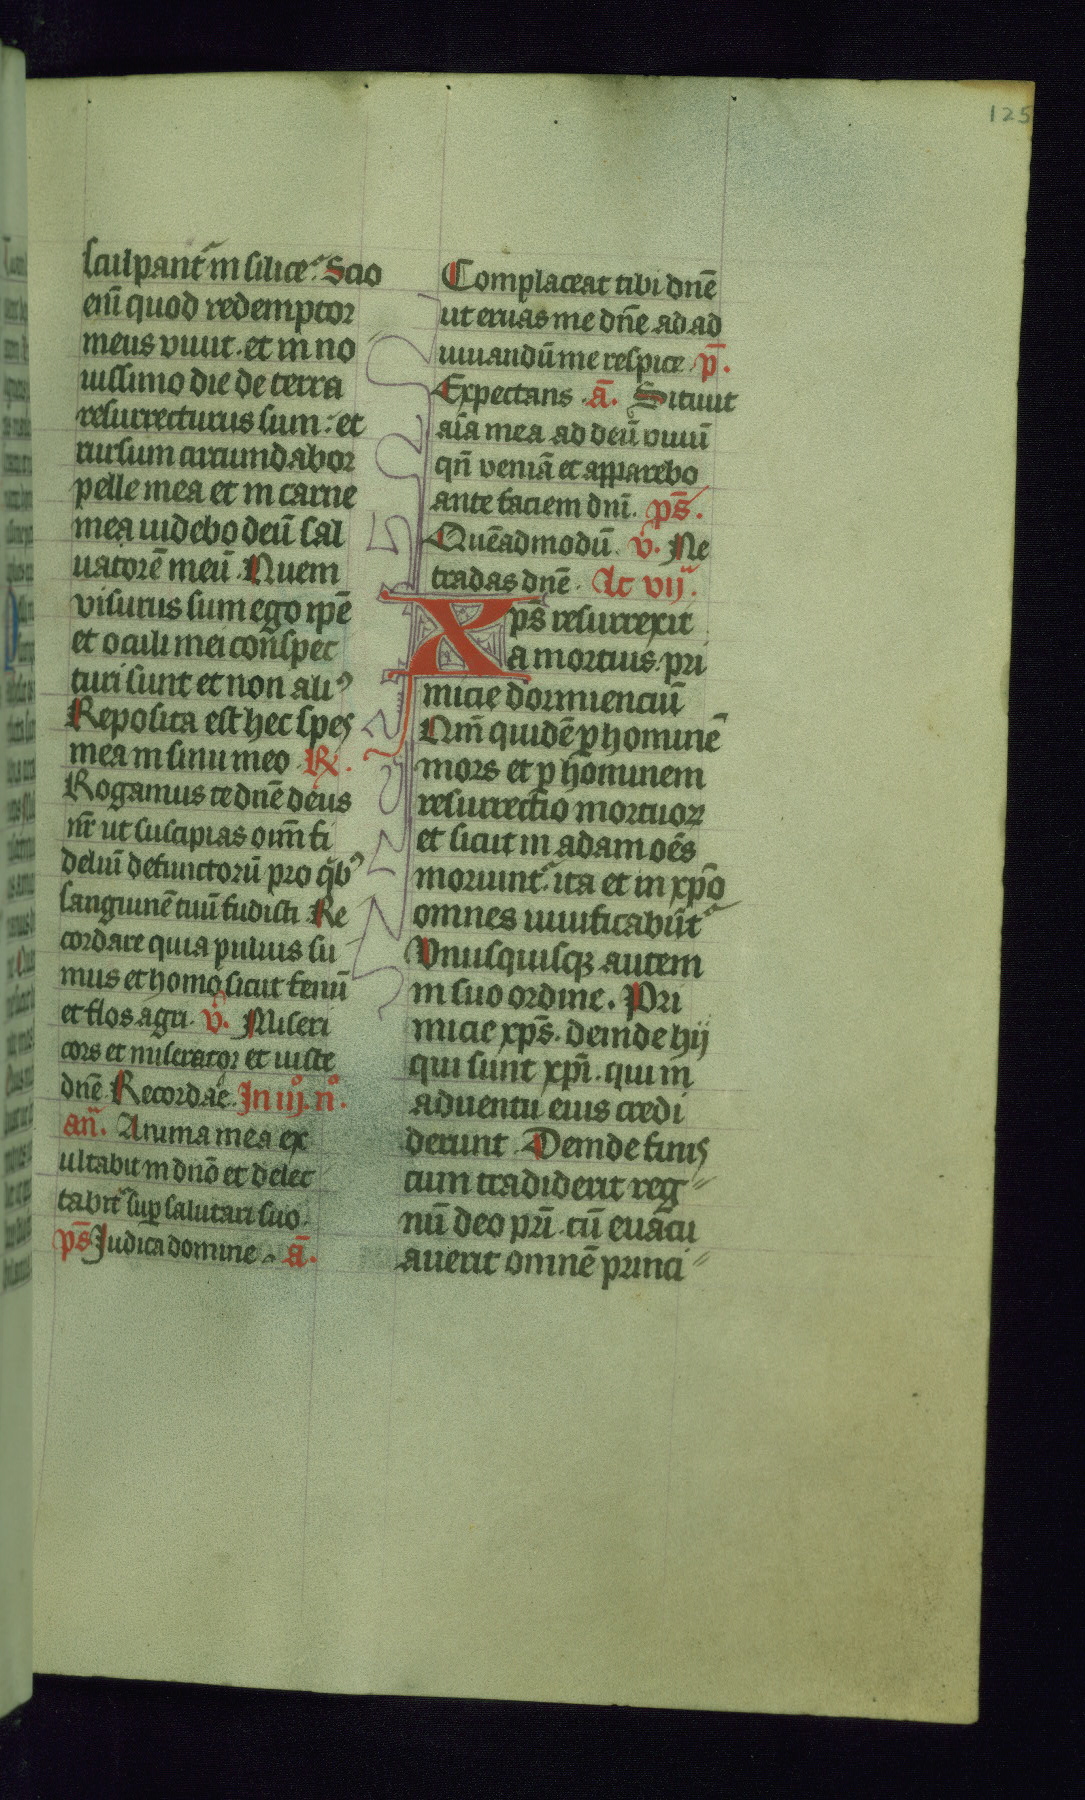 125
sculpant᷑ in silice. Scio
eni̅ quod redemptor
meus viuit. et in no
uissimo die de terra
resurrecturus sum. et
rursum circumdabor
pelle mea et in carne
mea uidebo deu̅ sal
uatore̅ meu̅. Quem
visurus sum ego ip̅e
et oculi mei conspec
turi sunt et non aliꝰ
Reposita est hec spes
mea in sinu meo. R̷.
Rogamus te dn̅e deus
nr̅ ut suscipias oim̅ fi
deliu̅ defunctoru̅ pro qͥbꝰ
sanguine̅ tuu̅ fudisti Re
cordare quia puluis su
mus et homo sicut fenu̅
et flos agri. v̊. Miseri
cors et miserator et iuste
dn̅e. Recordar̅e. In iij. nͦ.
an̅. Anima mea ex
ultabit in dn̅o et delec
tabit᷑ sup̲ salutari suo.
ps̅ Judica domine. a̅.
Complaceat tibi dn̅e
ut eruas me dn̅e ad ad
iuuandu̅ me respice. p̅.
Expectans. a̅. Sitiuit
aia̅ mea ad deu̅ viuu̅
qn̅ venia̅ et apparebo
ante faciem dni̅. ps̅.
Que̅admodu̅. v̊. Ne
tradas dn̅e. Lc̅ vij.
Xps̅ resurrexit
a mortuis. pri
micie dormienciu̅
Qm̅ quide̅ ꝑ homine̅
mors et ꝑ hominem
resurrectio mortuoꝝ
et sicut in adam oe̅s
moriunt᷑. ita et in xp̅o
omnes uiuificabu̅t᷑
Vnusquisqꝫ autem
in suo ordine. Pri
micie xps̅. deinde hij
qui sunt xpi̅. qui in
aduentu eius credi
derunt. Deinde finis
cum tradiderit reg
nu̅ deo pr̅i. cu̅ euacu
auerit omne̅ princi